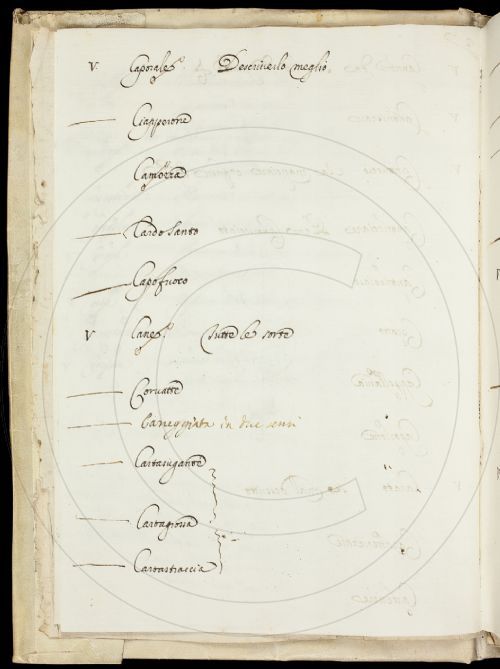 V. Caporale. Descriverlo meglio
Ciapperone
Camorza
Cardo Santo
Capofuoco
V Cane. Tutte le sorte
Corvatte
Careggiata in due sensi
Cartasugante
Cartagrossa
Cartastraccia